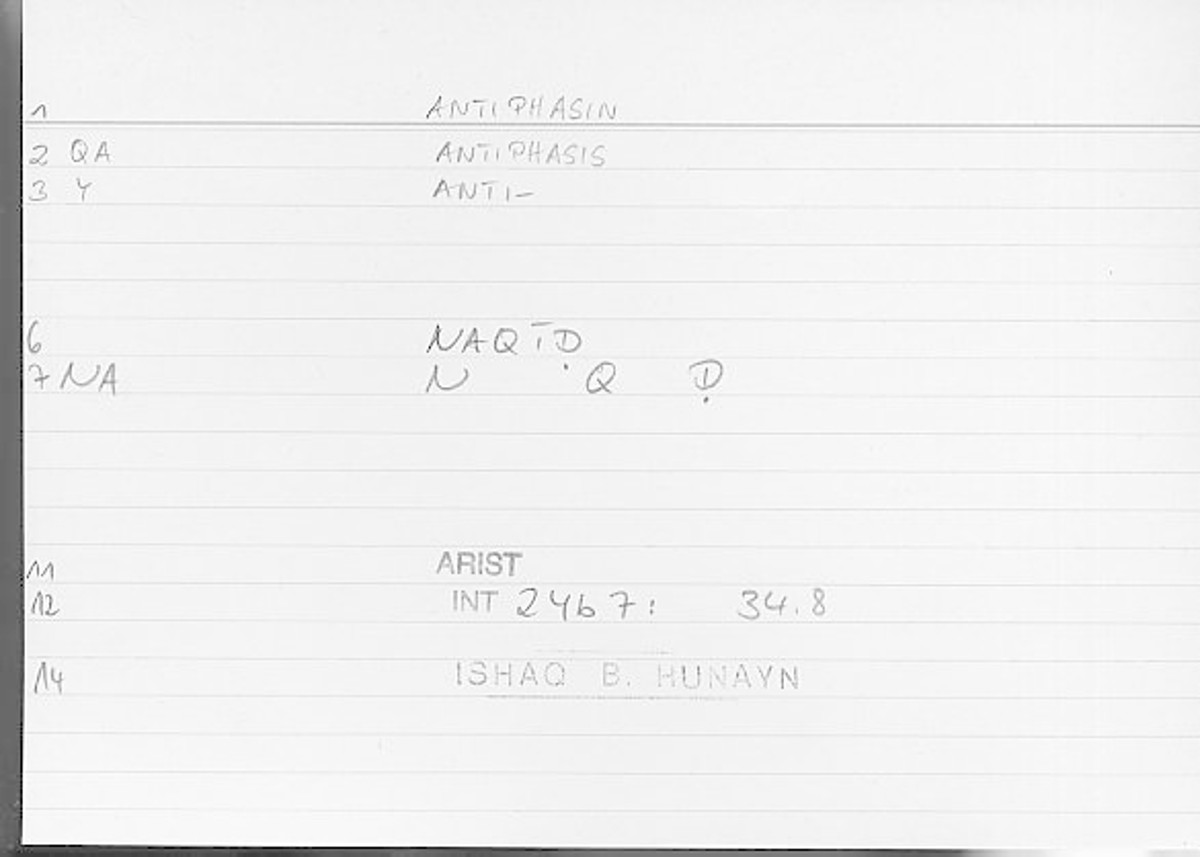 1 ANTIPHASIN
2 QA ANTIPHASIS
3 Y ANTI-
6 NAQĪḌ
7 NA N Q Ḍ
11 ARIST
12 INT 24b7: 34.8
14 ISHAQ B. HUNAYN